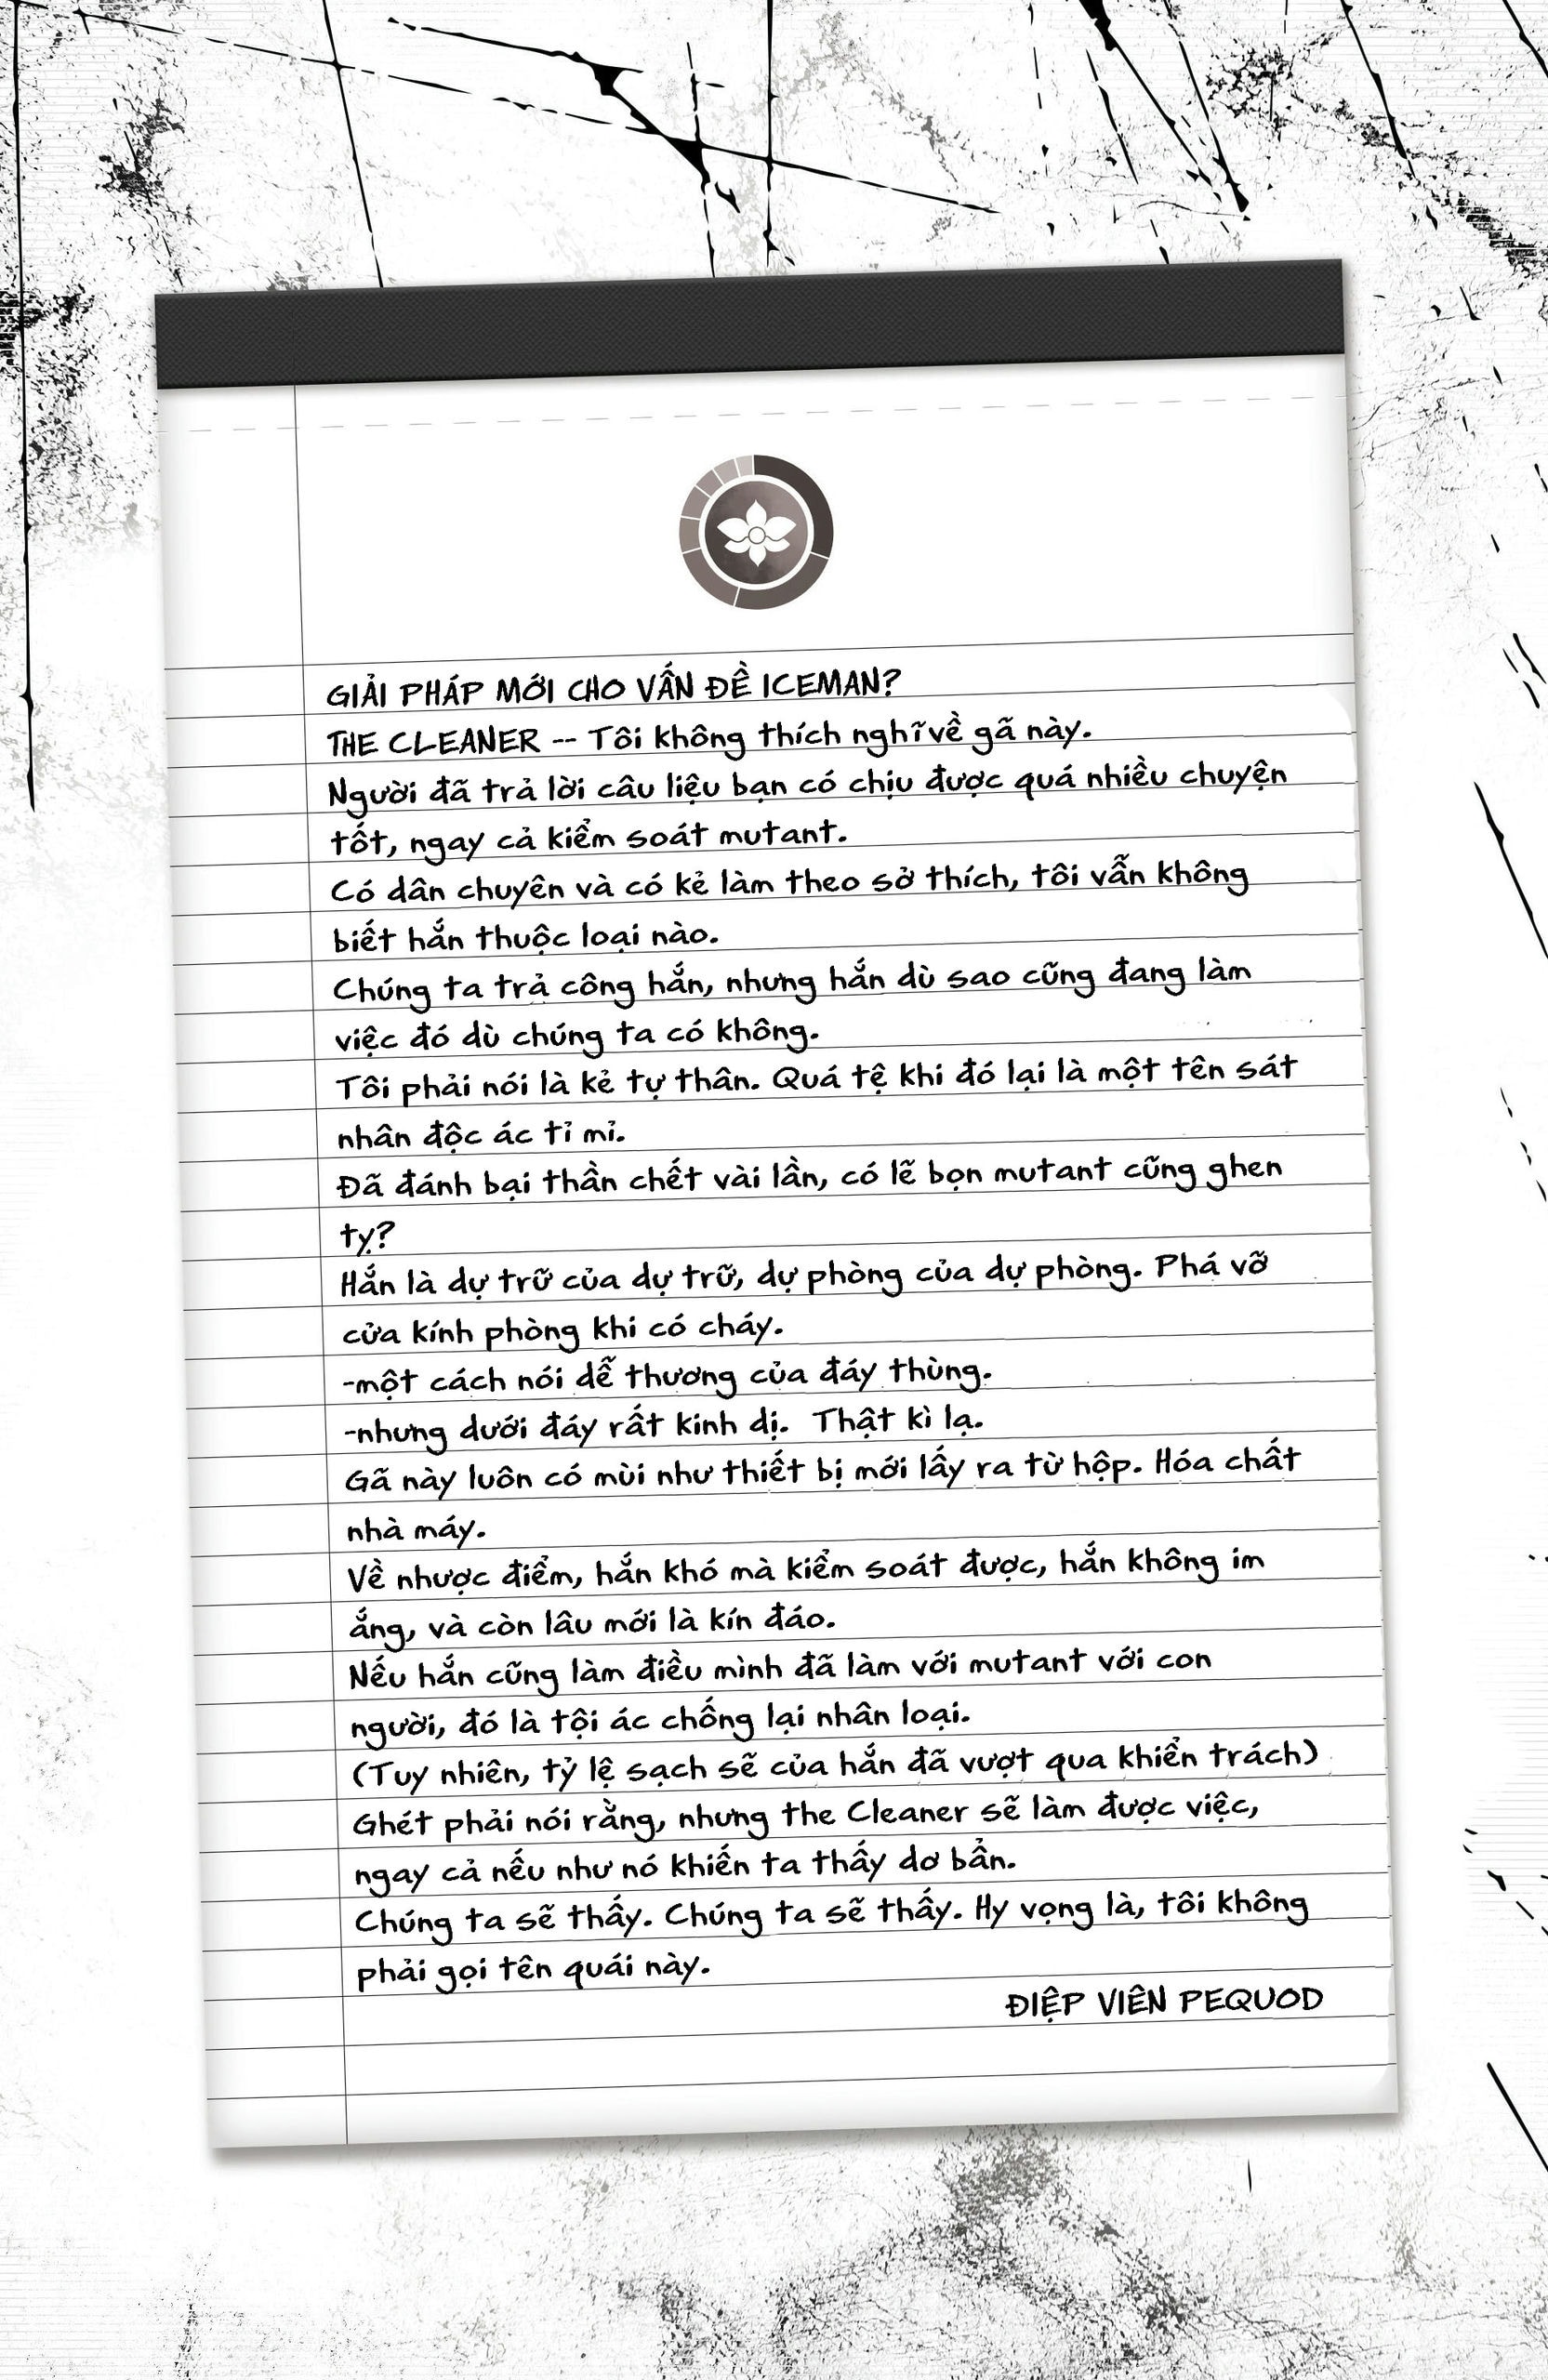 GIẢI PHÁP MỚI CHO VẤN ĐỀ ICEMAN?
THE CLEANER -- Tôi không thích nghĩ về gã này.
Người đã trả lời câu liệu bạn có chịu được quá nhiều chuyện
tốt, ngay cả kiểm soát mutant.
Có dân chuyên và có kẻ làm theo sở thích, tôi vẫn không
biết hắn thuộc loại nào.
Chúng ta trả công hắn, nhưng hắn dù sao cũng đang làm
việc đó dù chúng ta có không.
Tôi phải nói là kẻ tự thân. Quá tệ khi đó lại là một tên sát
nhân độc ác tỉ mỉ.
Đã đánh bại thần chết vài lần, có lẽ bọn mutant cũng ghen
tỵ?
Hắn là dự trữ của dự trữ, dự phòng của dự phòng. Phá vỡ
cửa kính phòng khi có cháy.
-một cách nói dễ thương của đáy thùng.
-nhưng dưới đáy rất kinh dị. Thật kì lạ.
Gã này luôn có mùi như thiết bị mới lấy ra từ hộp. Hóa chất
nhà máy.
Về nhược điểm, hắn khó mà kiểm soát được, hắn không im
ắng, và còn lâu mới là kín đáo.
Nếu hắn cũng làm điều mình đã làm với mutant với con
người, đó là tội ác chống lại nhân loại.
(Tuy nhiên, tỷ lệ sạch sẽ của hắn đã vượt qua khiển trách)
Ghét phải nói rằng, nhưng the Cleaner sẽ làm được việc,
ngay cả nếu như nó khiến ta thấy dơ bẩn.
Chúng ta sẽ thấy. Chúng ta sẽ thấy. Hy vọng là, tôi không
phải gọi tên quái này.
ĐIỆP VIÊN PEQUOD